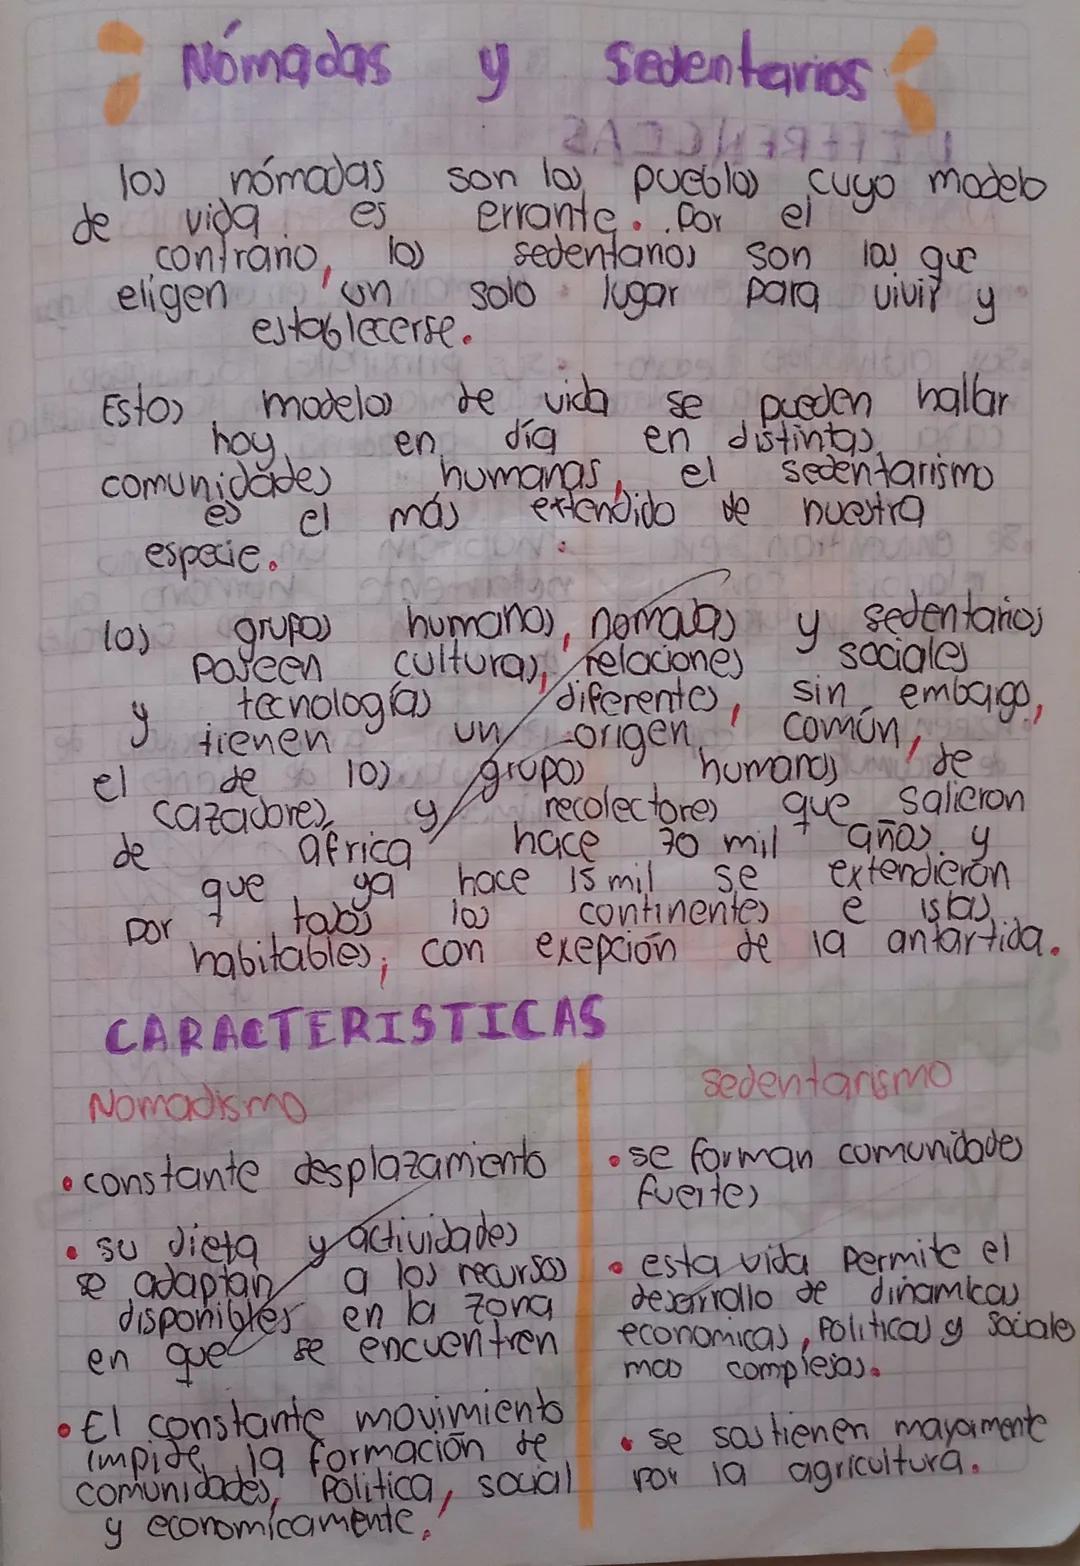 Nómadas y Sedentarios
los nómadas son los pueblos cuyo modelo
de vida es errante. Por el
contrario, los sedentarios son los que
eligen un solo lugar para vivir y
establecerse.
Estos modelos de vida se pueden hallar
hoy en día en distintas
comunidades humanas, el sedentarismo
es el más extendido de nuestra
especie.
los grupos humanos, nomadas y sedentarios
poseen culturas, relaciones sociales
y tecnologías diferentes, sin embago,
y tienen un origen común,
el de los grupos humanos de
cazadores y recolectores que salieron
de africa hace 70 mil años y
que ya hace 15 mil se extendieron
por todos los continentes e islas
habitables, con exepción de la antartida.
CARACTERISTICAS
Nomadismo
• constante desplazamiento
• su dieta y actividades
se adaptan a los recursos
disponibles en la zona
en que se encuentren
• El constante movimiento
impide la formación de
comunidades, Política, social
y económicamente.
sedentarismo
• se forman comunidades
fuertes
• esta vida permite el
desarrollo de dinamicas
economicas, Politicas y Sociales
mas complejas.
• se sostienen mayormente
por la agricultura.